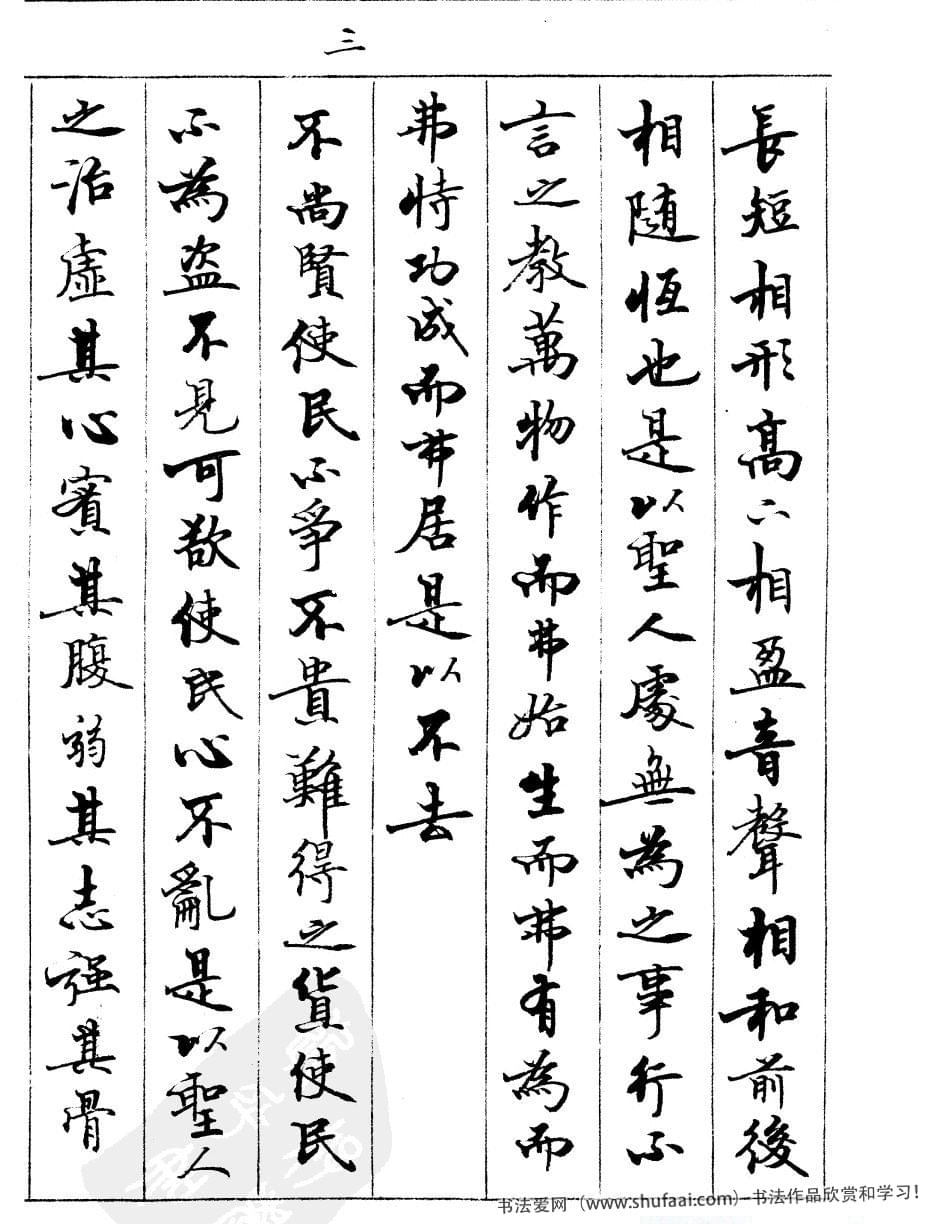 三
長短相形高下相盈音聲相和前後
相隨恆也是以聖人處無為之事行不
言之教萬物作而弗始生而弗有為而
弗恃功成而弗居是以不去
不尚賢使民不爭不貴難得之貨使民
不為盜不見可欲使民心不亂是以聖人
之治虛其心實其腹弱其志强其骨
书法爱网（www.shufaai.com）-书法作品欣赏和学习！